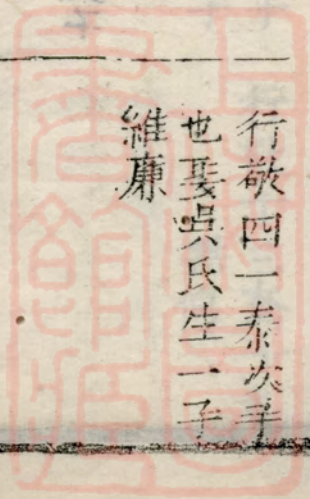 行敬四一泰次子
也娶吳氏生一子
維廉